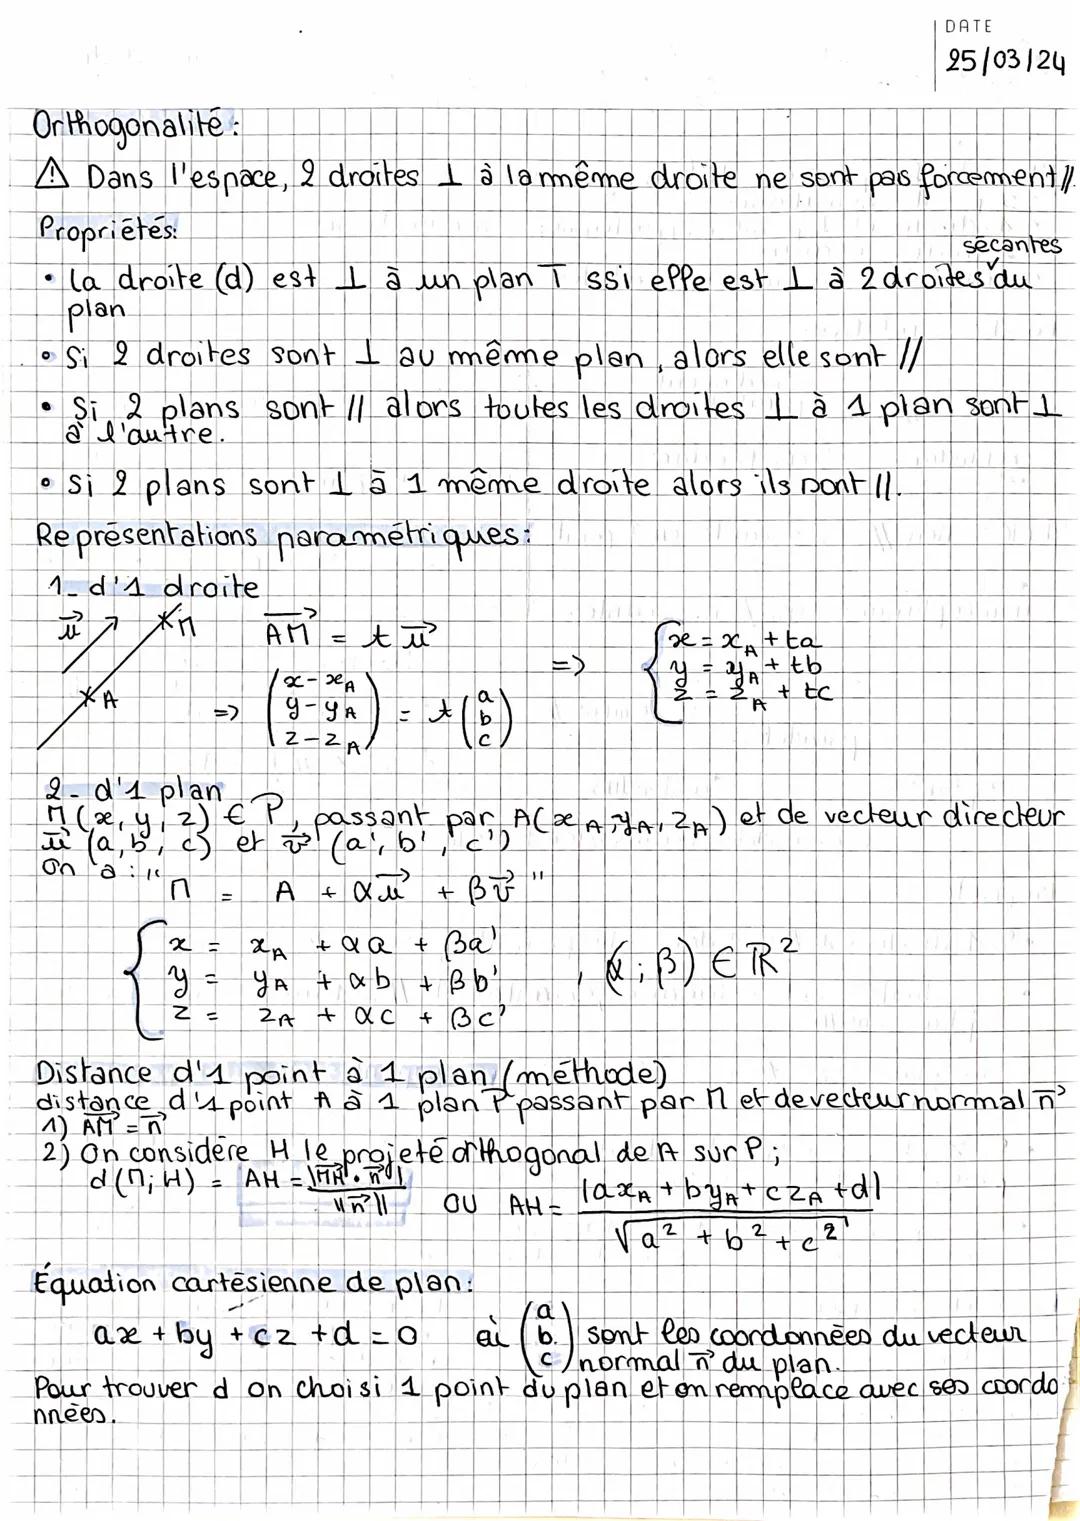 DATE
25/03/24
Orthogonalité :
⚠ Dans l'espace, 2 droites ⊥ à la même droite ne sont pas forcement //.
Propriétés:
sécantes
• la droite (d) est ⊥ à un plan T ssi elle est ⊥ à 2 droites du
plan
• Si 2 droites sont ⊥ au même plan, alors elle sont //
• Si 2 plans sont // alors toutes les droites ⊥ à 1 plan sont ⊥
à l'autre.
• Si 2 plans sont ⊥ à 1 même droite alors ils sont //.
Représentations paramétriques:
1- d'1 droite
u⃗ M AM⃗ = t u⃗
A => (x-xA y-yA z-zA) = t (a b c) => { x = xA + ta
y = yA + tb
z = zA + tc
2- d'1 plan
M(x, y, z) ∈ P, passant par A(xA, yA, zA) et de vecteur directeur
u⃗ (a, b, c) et v⃗ (a', b', c')
on a : "
M = A + αu⃗ + βv⃗ "
{ x = xA + αa + βa'
y = yA + αb + βb' , (α; β) ∈ ℝ²
z = zA + αc + βc'
Distance d'1 point à 1 plan (méthode)
distance d'1 point A à 1 plan P passant par M et de vecteur normal n⃗
1) AM⃗ = n⃗
2) On considère H le projeté orthogonal de A sur P;
d(M; H) = AH = |MA⃗ · n⃗| / ||n⃗|| OU AH = |axA + byA + czA + d| / √a² + b² + c²
Équation cartésienne de plan:
ax + by + cz + d = 0 où (a b c) sont les coordonnées du vecteur
normal n⃗ du plan.
Pour trouver d on choisi 1 point du plan et on remplace avec ses coordo
nnées.